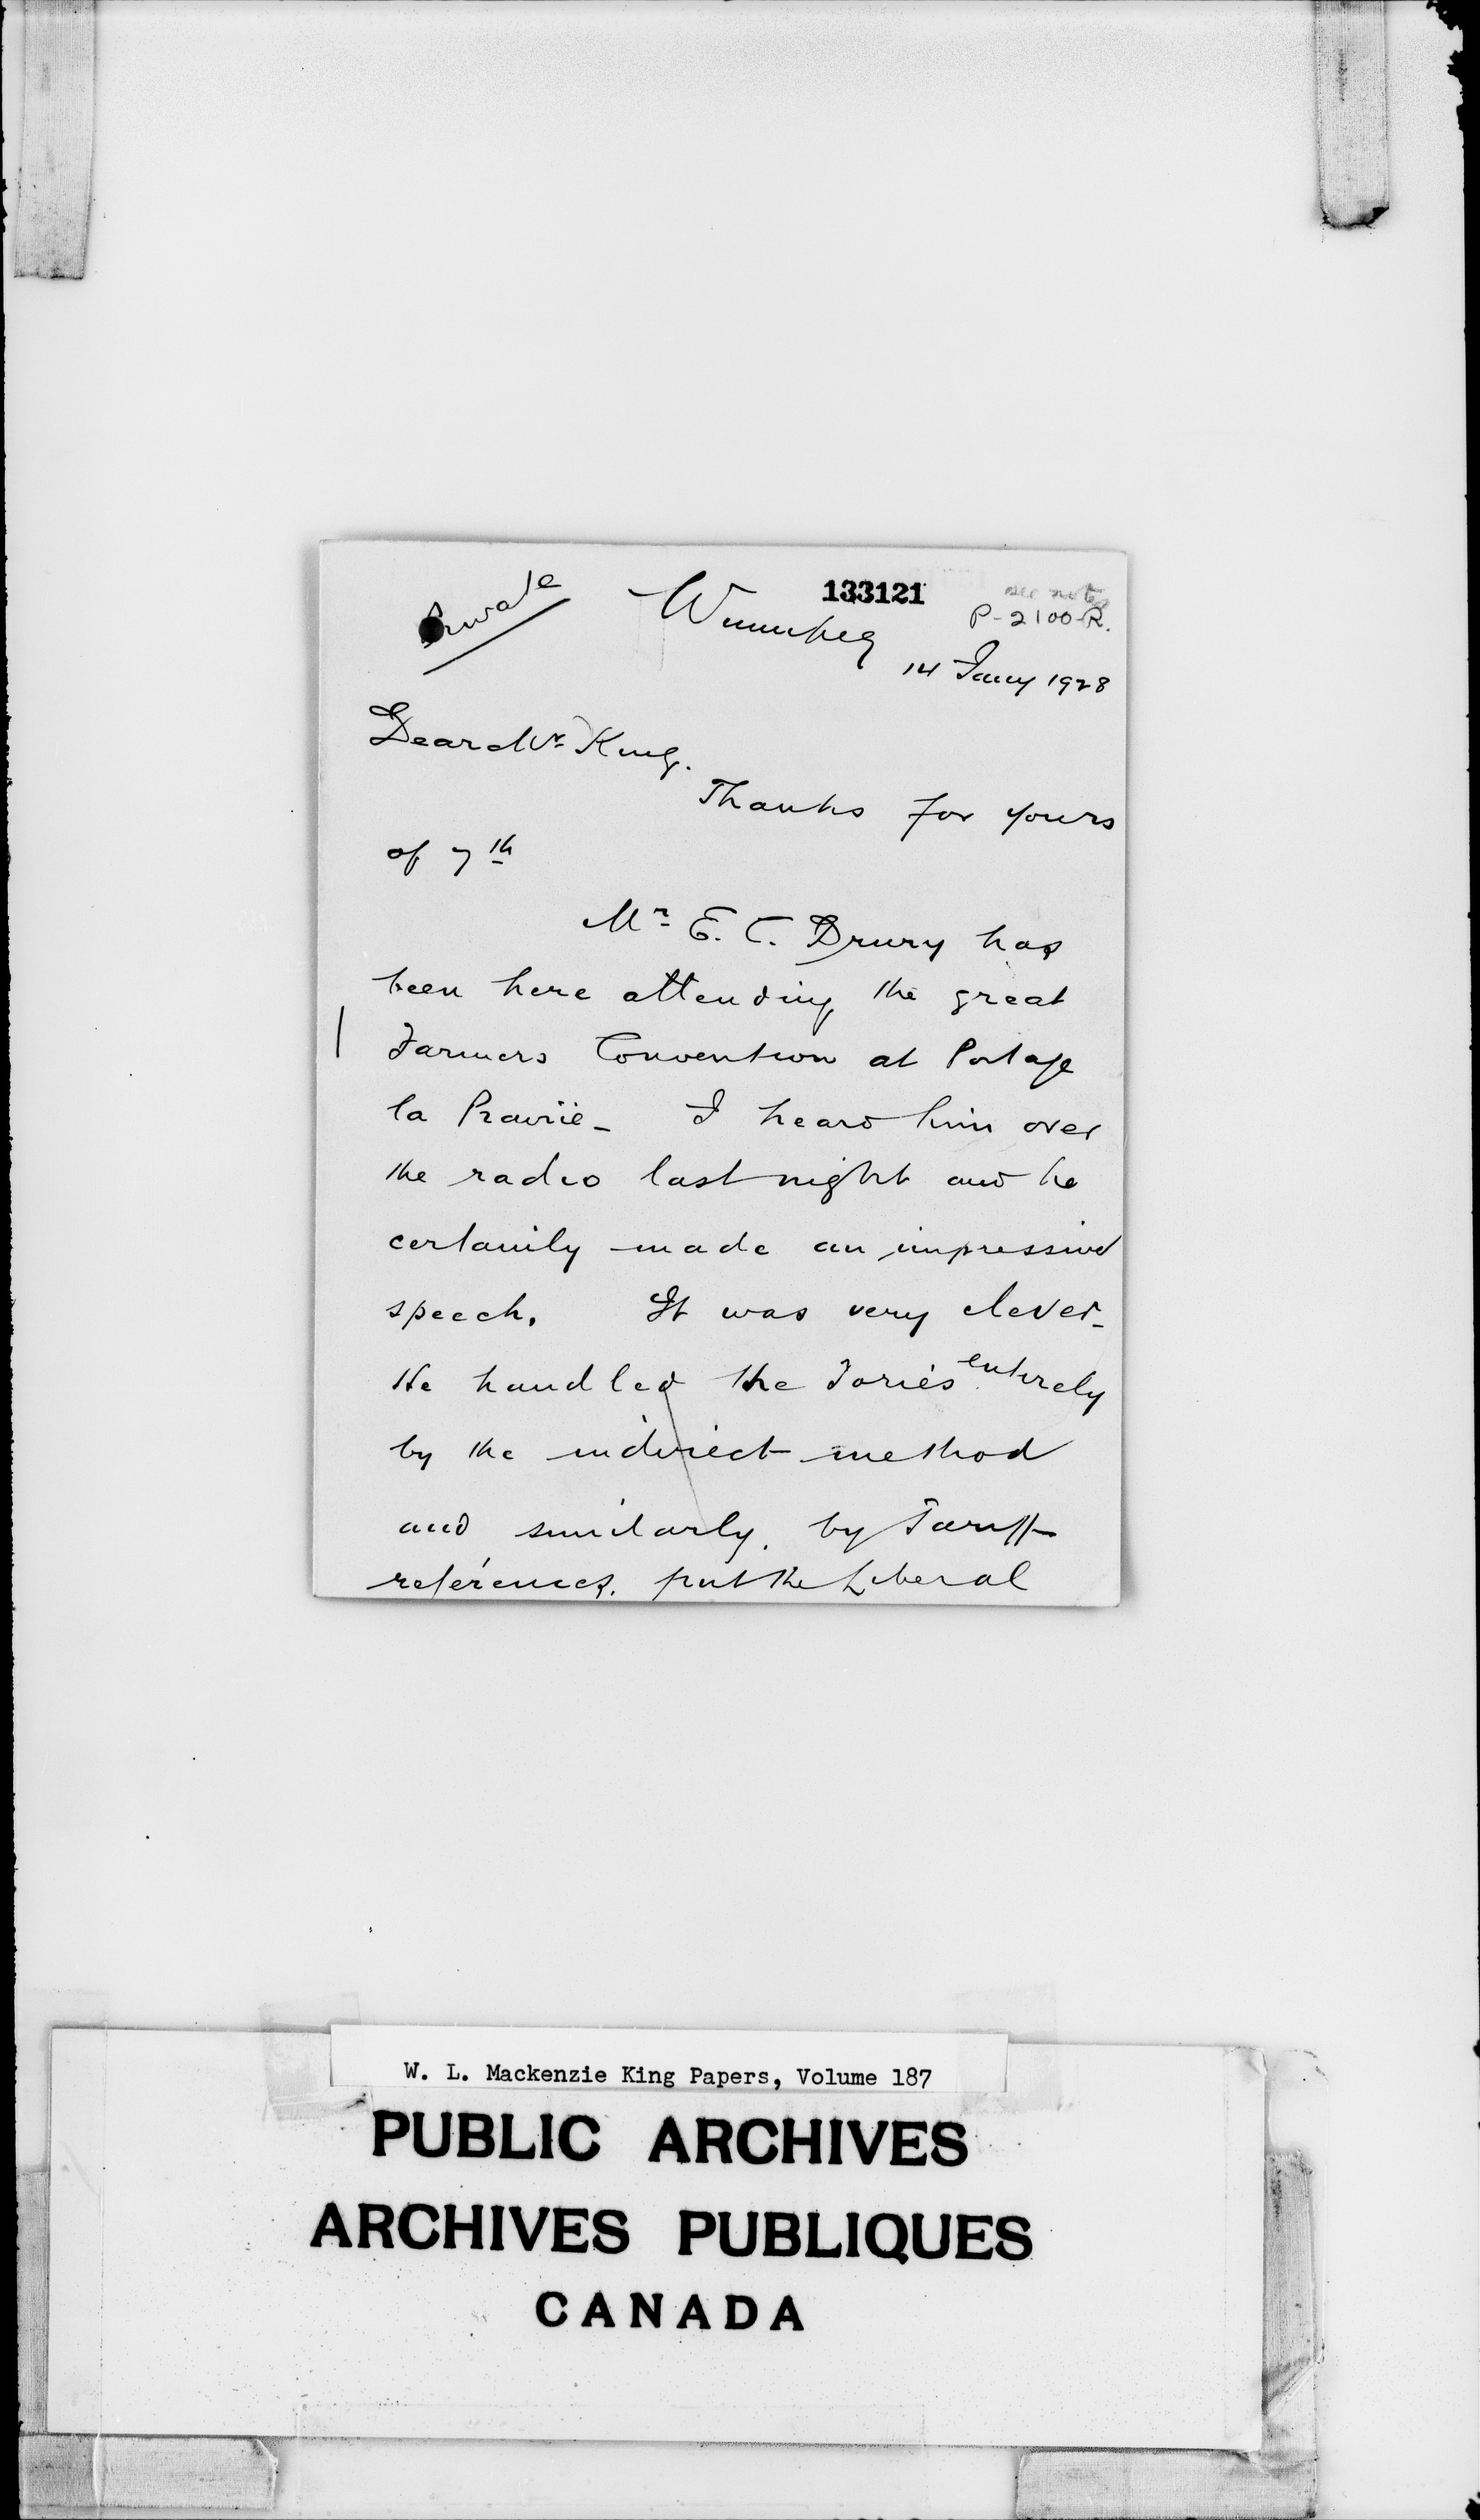 Private
133121
see note
P-2100-R.
Winnipeg
14 Jany 1928
Dear Mr King.
Thanks for yours
of 7th
Mr E. C. Drury has
been here attending the great
Farmers Convention at Portage
la Prairie - I heard him over
the radio last night and he
certainly made an impressive
speech. It was very clever -
He handled the Tories entirely
by the indirect method
and similarly, by Tariff
references, put the Liberal
W. L. Mackenzie King Papers, Volume 187
PUBLIC ARCHIVES
ARCHIVES PUBLIQUES
CANADA